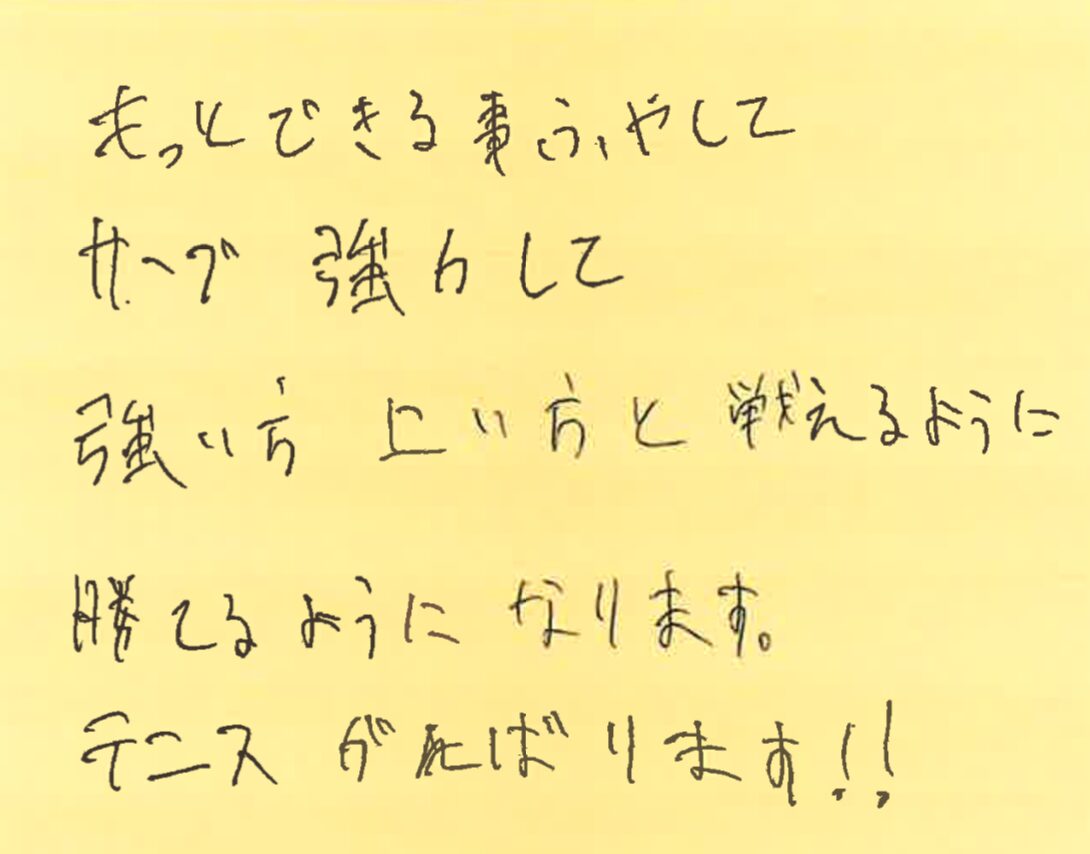 もっとできる事ふやして
サーブ 強力して
強い方 上い方と 戦えるように
勝てるように なります。
テニス がんばります!!